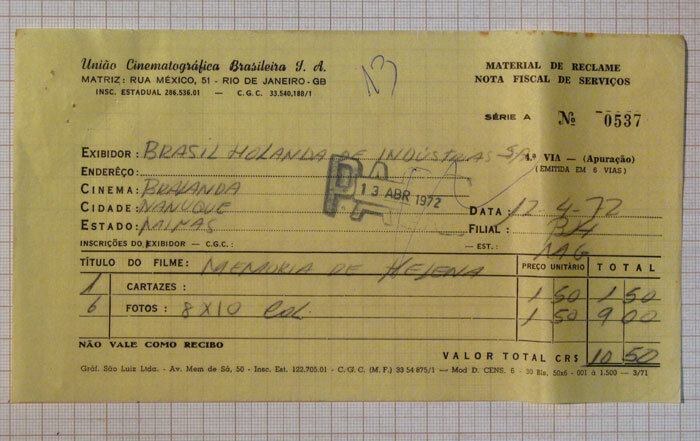 União Cinematográfica Brasileira S. A.
MATRIZ: RUA MÉXICO, 51 - RIO DE JANEIRO - GB
INSC. ESTADUAL 286.536.01 — C.G.C. 33.540.188/1
MATERIAL DE RECLAME
NOTA FISCAL DE SERVIÇOS
SÉRIE A Nº 0537
EXIBIDOR: BRASIL HOLANDA DE INDÚSTRIAS S/A
4.ª VIA — (Apuração)
(EMITIDA EM 6 VIAS)
ENDERÊÇO:
13 ABR 1972
CINEMA: BRALANDA
CIDADE: NANUQUE DATA: 12.4.72
ESTADO: MINAS FILIAL: BH
INSCRIÇÕES DO EXIBIDOR - C.G.C.: — EST.: MG
TÍTULO DO FILME: MEMORIA DE HELENA PREÇO UNITÁRIO TOTAL
1 CARTAZES: 1 50 1 50
6 FOTOS: 8X10 COL. 1 50 9 00
NÃO VALE COMO RECIBO
VALOR TOTAL CR$ 10 50
Gráf. São Luiz Ltda. - Av. Mem de Sá, 50 - Insc. Est. 122.705.01 - C.G.C. (M.F.) 33 54 875/1 — Mod D. CENS. 6 - 30 Bls. 50x6 - 001 à 1.500 — 3/71